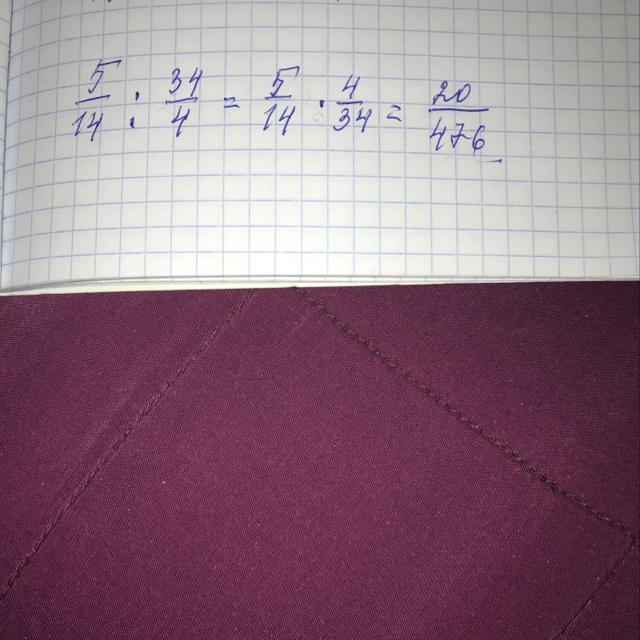 5/14 : 34/4 = 5/14 · 4/34 = 20/476